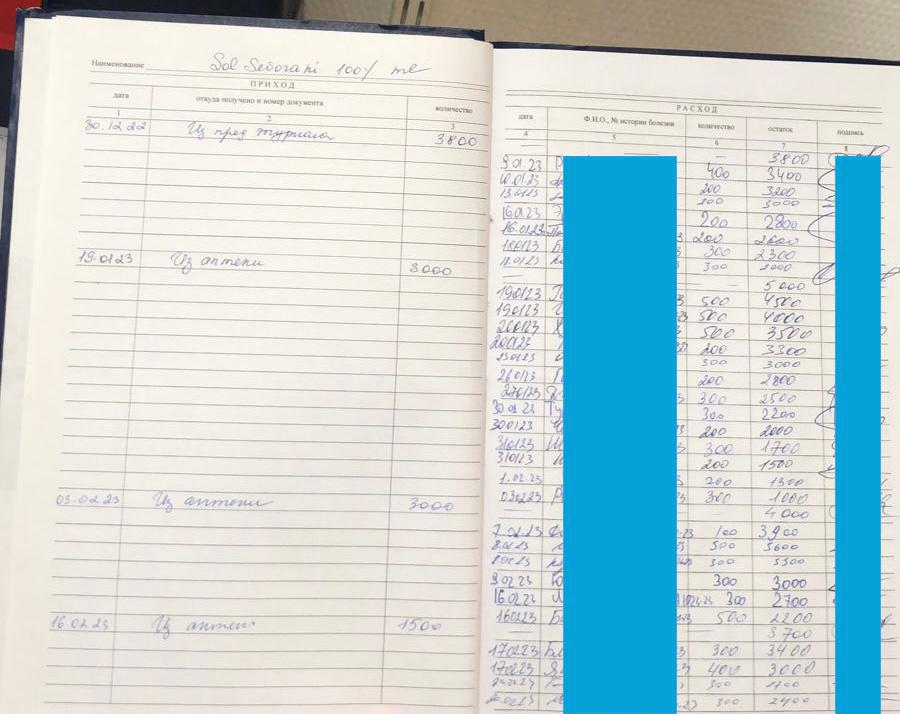 Наименование Sol Sevorani 100% ml
ПРИХОД
дата откуда получено и номер документа количество
1 2 3
30.12.22 Из пред журнала 3800
19.01.23 Из аптеки 3000
03.02.23 Из аптеки 3000
16.02.23 Из аптеки 1500
РАСХОД
дата Ф.И.О., № истории болезни количество остаток подпись
4 5 6 7 8
— 3800
9.01.23 400 3400
10.01.23 200 3200
13.01.23 200 3000
16.01.23 200 2800
16.01.23 200 2600
18.01.23 300 2300
300 2000
— 5000
19.01.23 500 4500
19.01.23 500 4000
20.01.23 500 3500
20.01.23 200 3300
300 3000
26.01.23 200 2800
27.01.23 300 2500
30.01.23 300 2200
30.01.23 200 2000
31.01.23 300 1700
31.01.23 200 1500
1.02.23 200 1300
03.02.23 300 1000
— 4000
7.02.23 100 3900
8.02.23 300 3600
8.02.23 300 3300
9.02.23 300 3000
16.02.23 300 2700
16.02.23 500 2200
— 3700
17.02.23 300 3400
17.02.23 400 3000
300 2700
300 2400